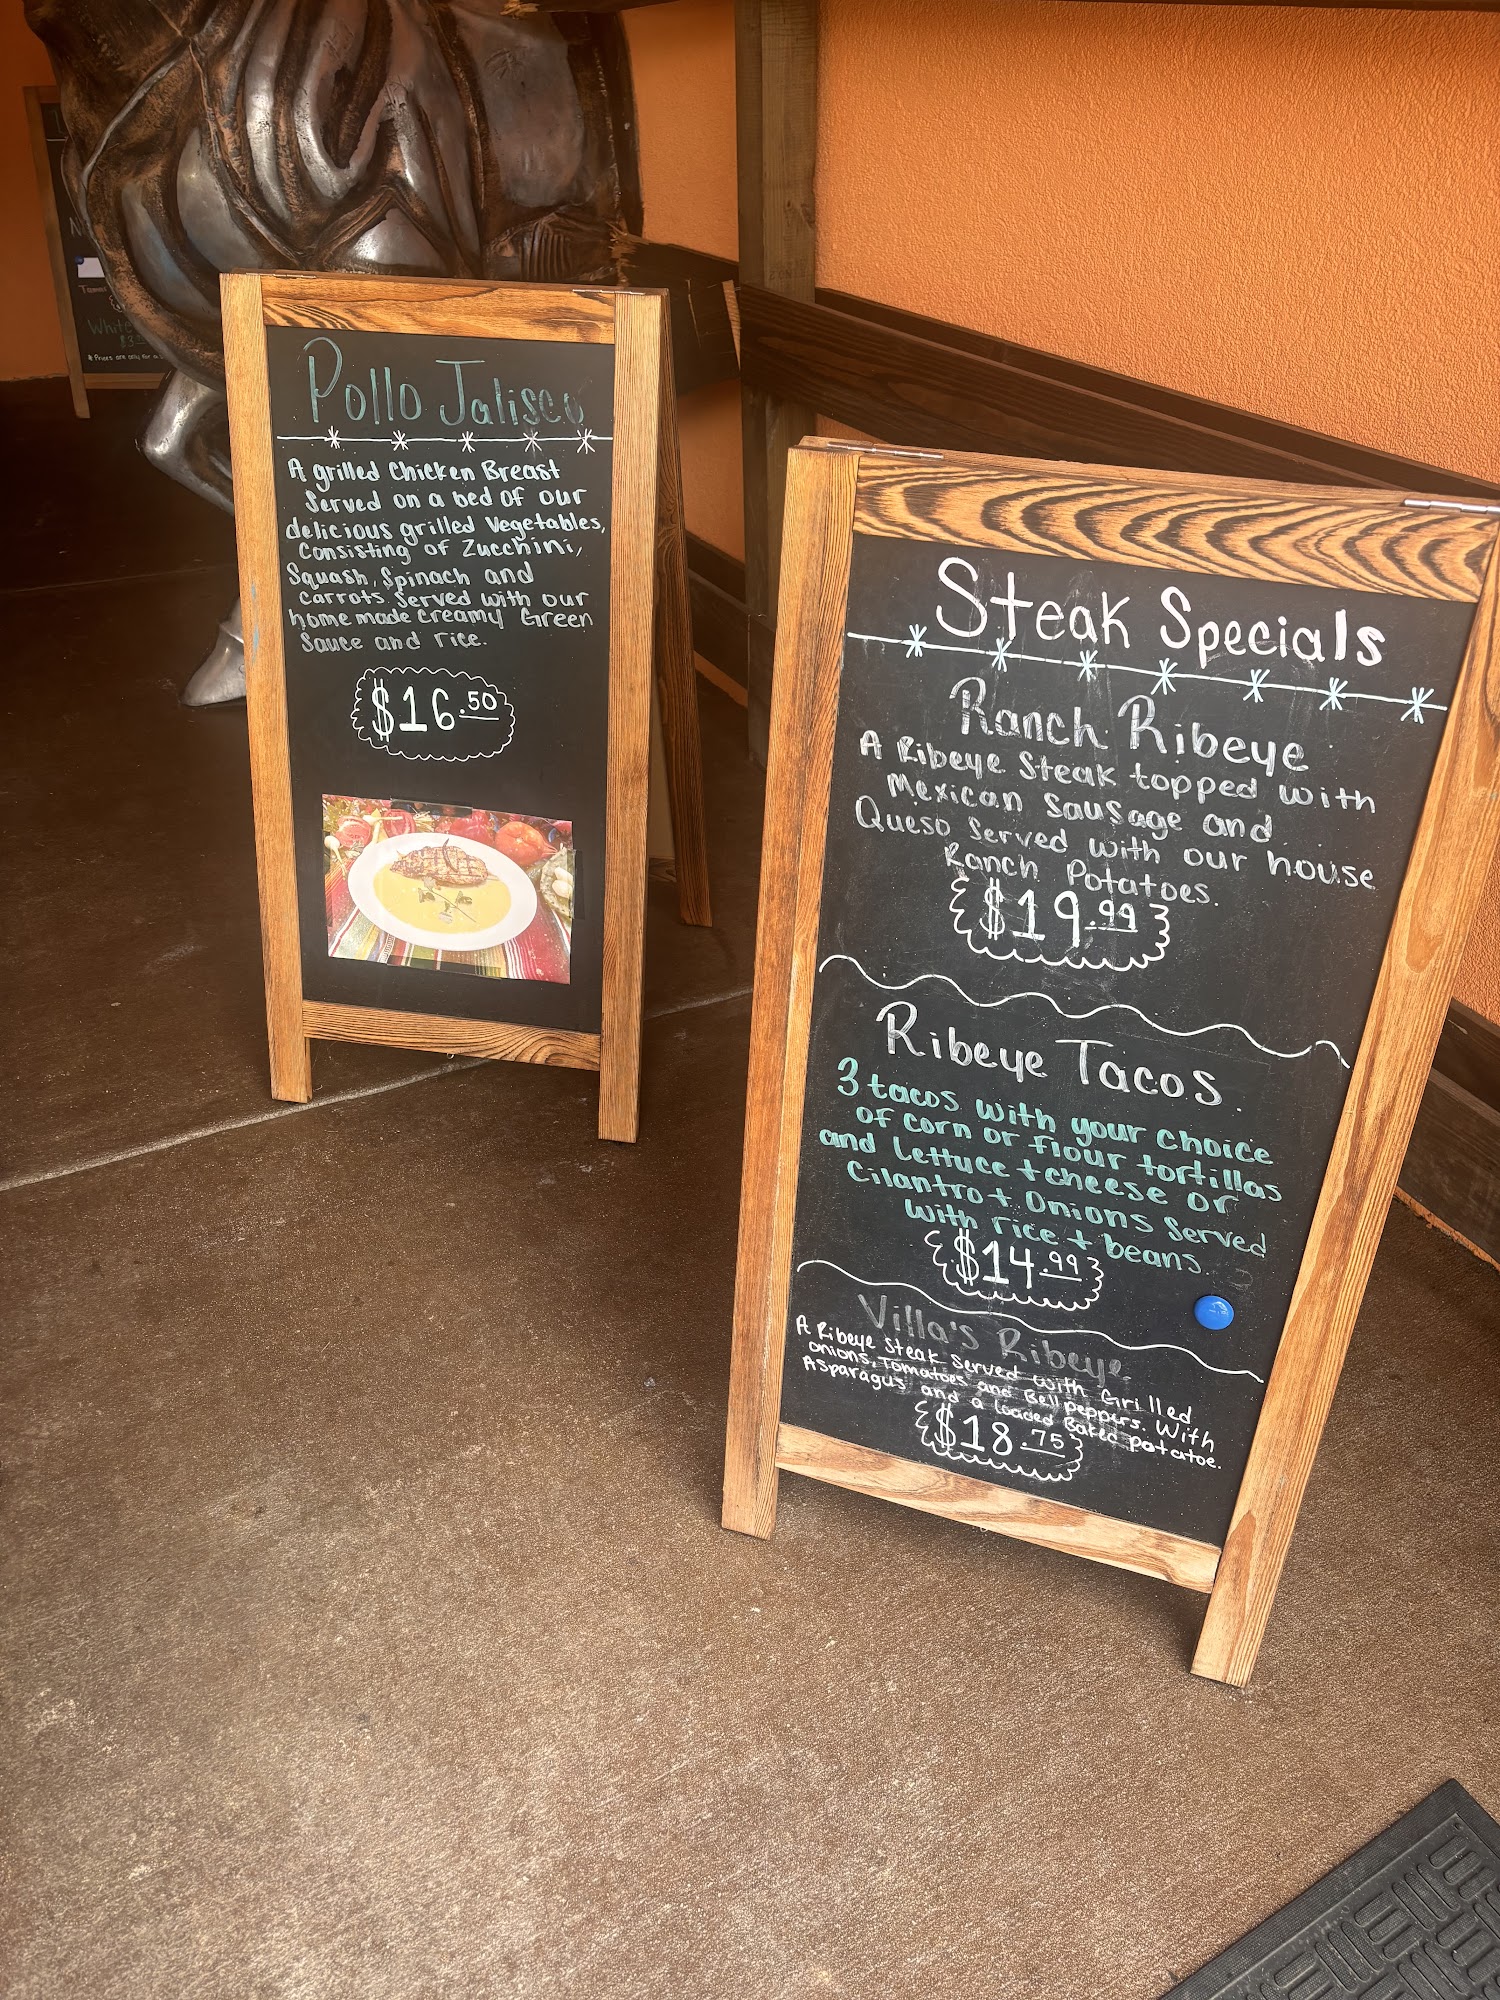 Pollo Jalisco
A grilled Chicken Breast
Served on a bed of our
delicious grilled Vegetables,
Consisting of Zucchini,
Squash, Spinach and
carrots. Served with our
homemade creamy Green
Sauce and rice.
$16.50
Steak Specials
Ranch Ribeye
A Ribeye Steak topped with
Mexican Sausage and
Queso Served with our house
Ranch Potatoes.
$19.99
Ribeye Tacos
3 tacos with your choice
of corn or flour tortillas
and Lettuce + cheese or
Cilantro + Onions Served
with rice + beans.
$14.99
Villa's Ribeye
A Ribeye Steak Served with Grilled
onions, Tomatoes and Bell peppers. With
Asparagus and a loaded Baked potatoe.
$18.75
White